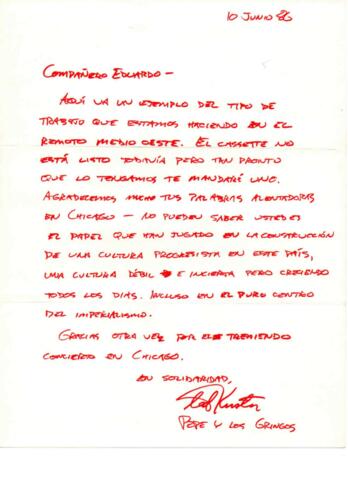 10 JUNIO 86
COMPAÑERO EDUARDO —
AQUÍ VA UN EJEMPLO DEL TIPO DE
TRABAJO QUE ESTAMOS HACIENDO EN EL
REMOTO MEDIO OESTE. EL CASSETTE NO
ESTÁ LISTO TODAVÍA PERO TAN PRONTO
QUE LO TENGAMOS TE MANDARÉ UNO.
AGRADECEMOS MUCHO TUS PALABRAS ALENTADORAS
EN CHICAGO — NO PUEDEN SABER USTEDES
EL PAPEL QUE HAN JUGADO EN LA CONSTRUCCIÓN
DE UNA CULTURA PROGRESISTA EN ESTE PAÍS,
UNA CULTURA DÉBIL E INCIERTA PERO CRECIENDO
TODOS LOS DIAS. INCLUSO EN EL PURO CENTRO
DEL IMPERIALISMO.
GRACIAS OTRA VEZ POR EL TREMENDO
CONCIERTO EN CHICAGO.
EN SOLIDARIDAD,
PEPE Y LOS GRINGOS